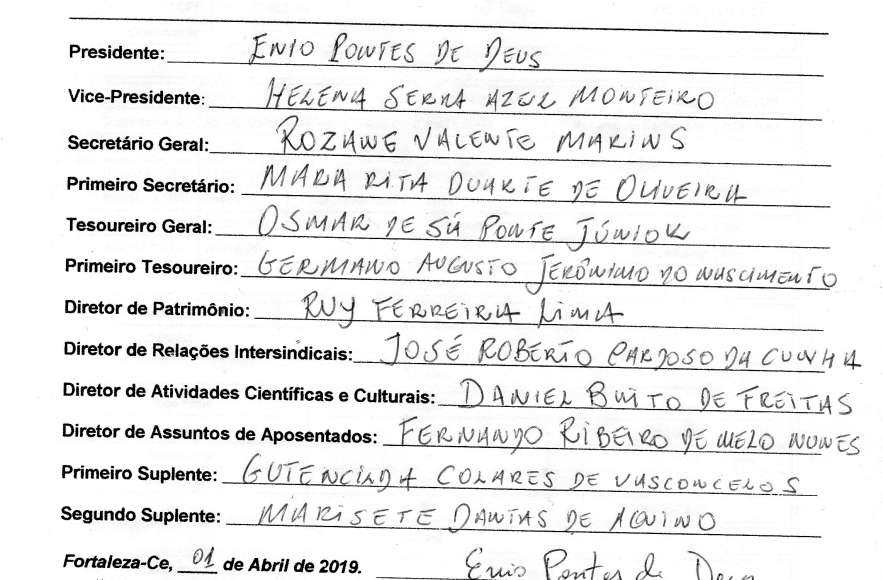 Presidente: ENIO PONTES DE DEUS
Vice-Presidente: HELENA SERRA AZUL MONTEIRO
Secretário Geral: ROZANE VALENTE MARINS
Primeiro Secretário: MARA RITA DUARTE DE OLIVEIRA
Tesoureiro Geral: OSMAR DE SÁ PONTE JÚNIOR
Primeiro Tesoureiro: GERMANO AUGUSTO JERÔNIMO DO NASCIMENTO
Diretor de Patrimônio: RUY FERREIRA LIMA
Diretor de Relações Intersindicais: JOSÉ ROBERTO CARDOSO DA CUNHA
Diretor de Atividades Científicas e Culturais: DANIEL BRITO DE FREITAS
Diretor de Assuntos de Aposentados: FERNANDO RIBEIRO DE MELO NUNES
Primeiro Suplente: COLARES DE VASCONCELOS
Segundo Suplente: MARISETE DANTAS DE AQUINO
Fortaleza-Ce, 01 de Abril de 2019. Enio Pontes de Deus